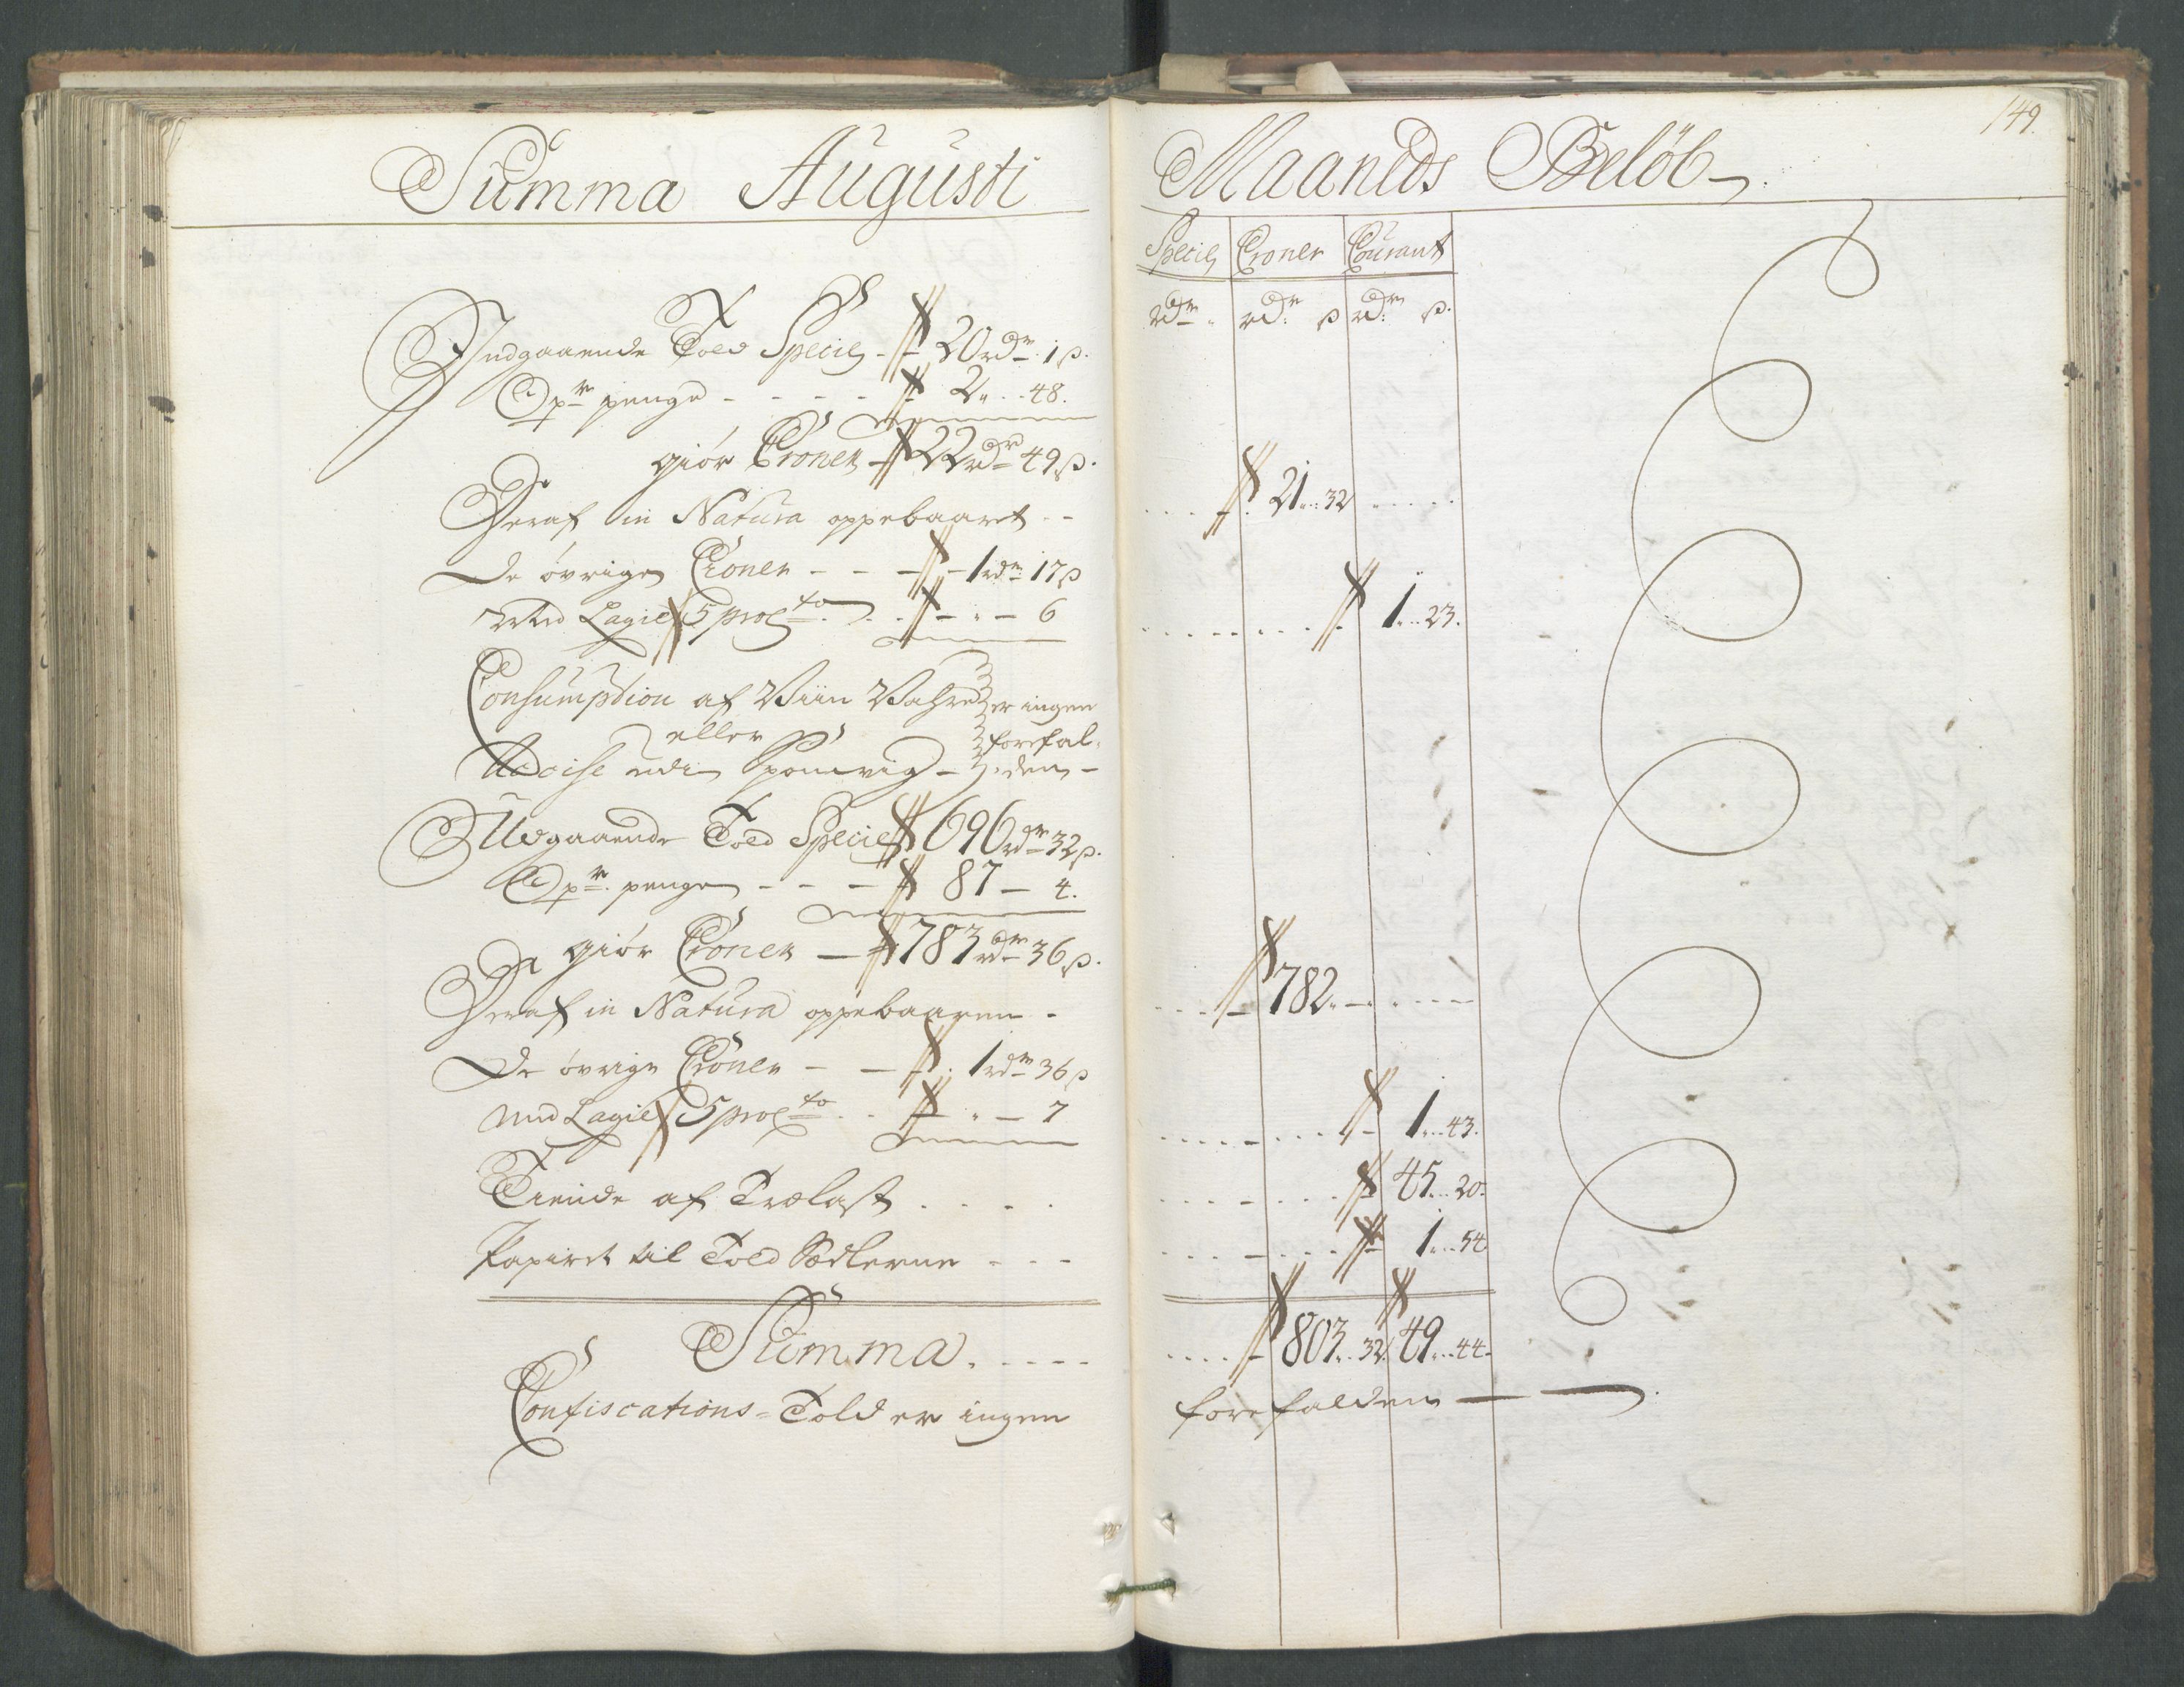 149.
Summa Augusti Maaneds Beløb
Specie Croner Courant
rdr rdr ß rdr ß.
Indgaaende Told Specie - 20 rdr 1 ß.
Opr penge - - - - 2 .. 48.
giör Croner 22 rdr 49 ß.
Deraf in Natura oppebaaret - - 21 .. 32
De övrige Croner - - - 1 rdr 17 ß
Med Lagie 5 procto . . - " - 6 1 .. 23.
Consumption af Viin Vahre er ingen
eller forefal-
Accise udi - den -
Udgaaende Told Specie 696 rdr 32 ß.
Opr. penge - - - 87 - 4.
giör Croner - 783 rdr 36 ß.
Deraf in Natura oppebaaren - 782 " -
De övrige Croner - - 1 rdr 36 ß
Med Lagie 5 procto . . " - 7 1 .. 43.
Tiende af Trælast . . . . 45 .. 20.
Papiret til Told Sædlerne - - - 1 .. 54
Summa . - - - - 803 .. 32. 49 .. 44.
Confiscations-Told er ingen forefalden